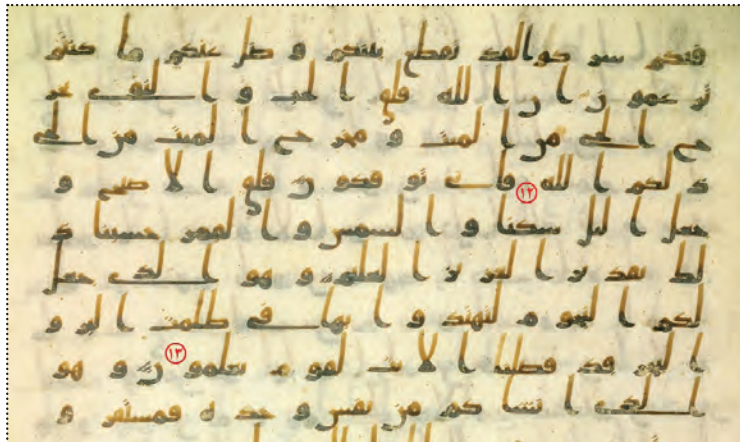 فيكم شركوا لقد تقطع بينكم و ضل عنكم ما كنتم
تزعمون ان الله فلق الحب و النوى يخر
ج الحي من الميت و مخرج الميت من الحي
ذلكم الله فانى توفكون ١٢ فلق الاصبح و
جعل اليل سكنا و الشمس و القمر حسبنا ذ
لك تقدير العزيز العليم و هو الذي جعل
لكم النجوم لتهتدوا بها في ظلمت البر و
البحر قد فصلنا الايت لقوم يعلمون ١٣ و هو
الذي انشاكم من نفس وحدة فمستقر و